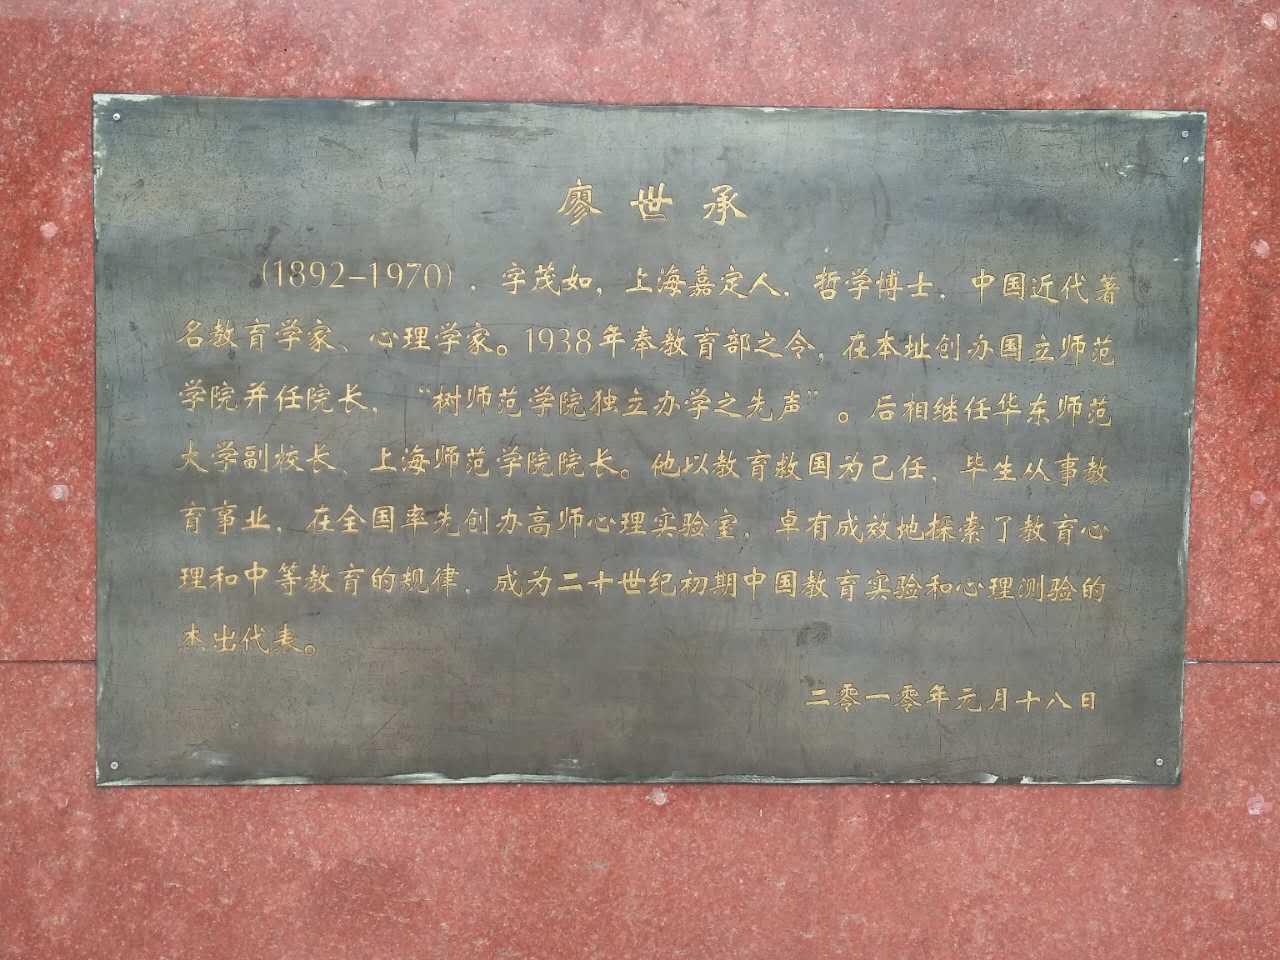 廖世承
(1892-1970)，字茂如，上海嘉定人，哲学博士，中国近代著
名教育学家、心理学家。1938年奉教育部之令，在本址创办国立师范
学院并任院长，“树师范学院独立办学之先声”。后相继任华东师范
大学副校长、上海师范学院院长。他以教育救国为己任，毕生从事教
育事业，在全国率先创办高师心理实验室，卓有成效地探索了教育心
理和中等教育的规律，成为二十世纪初期中国教育实验和心理测验的
杰出代表。
二零一零年元月十八日